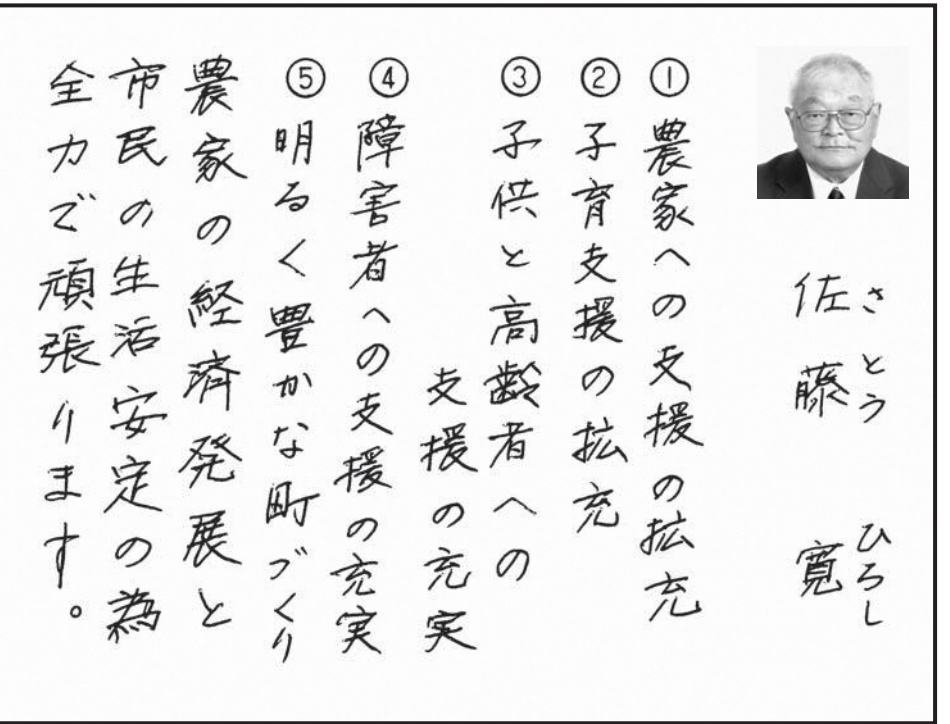 さとう ひろし
佐藤 寛
①農家への支援の拡充
②子育支援の拡充
③子供と高齢者への
支援の充実
④障害者への支援の充実
⑤明るく豊かな町づくり
農家の経済発展と
市民の生活安定の為
全力で頑張ります。